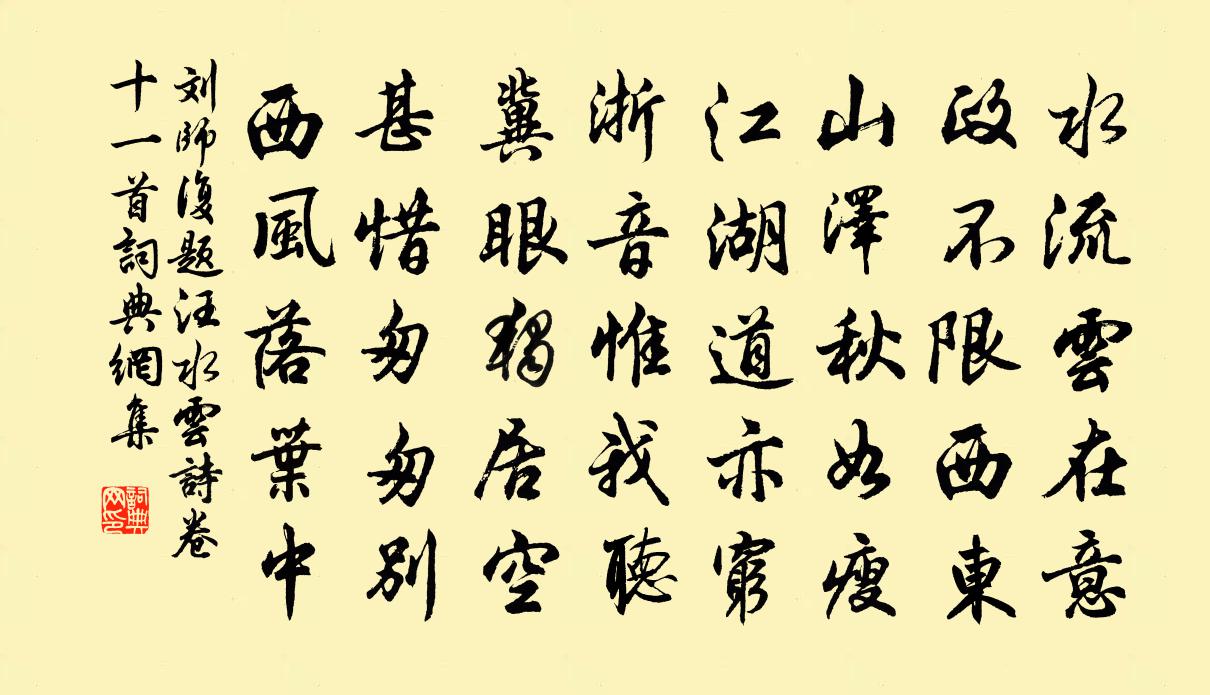 水流雲在意
政不限西東
山澤秋如瘦
江湖道亦窮
浙音惟我聽
冀眼獨居空
甚惜匆匆別
西風落葉中
刘師復题汪水雲詩卷
十一首詞典網集
詞典
网印